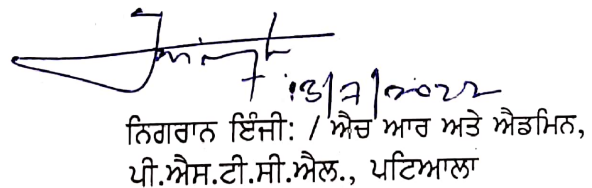 13/7/2022
ਨਿਗਰਾਨ ਇੰਜੀ: / ਐਚ ਆਰ ਅਤੇ ਐਡਮਿਨ,
ਪੀ.ਐਸ.ਟੀ.ਸੀ.ਐਲ., ਪਟਿਆਲਾ